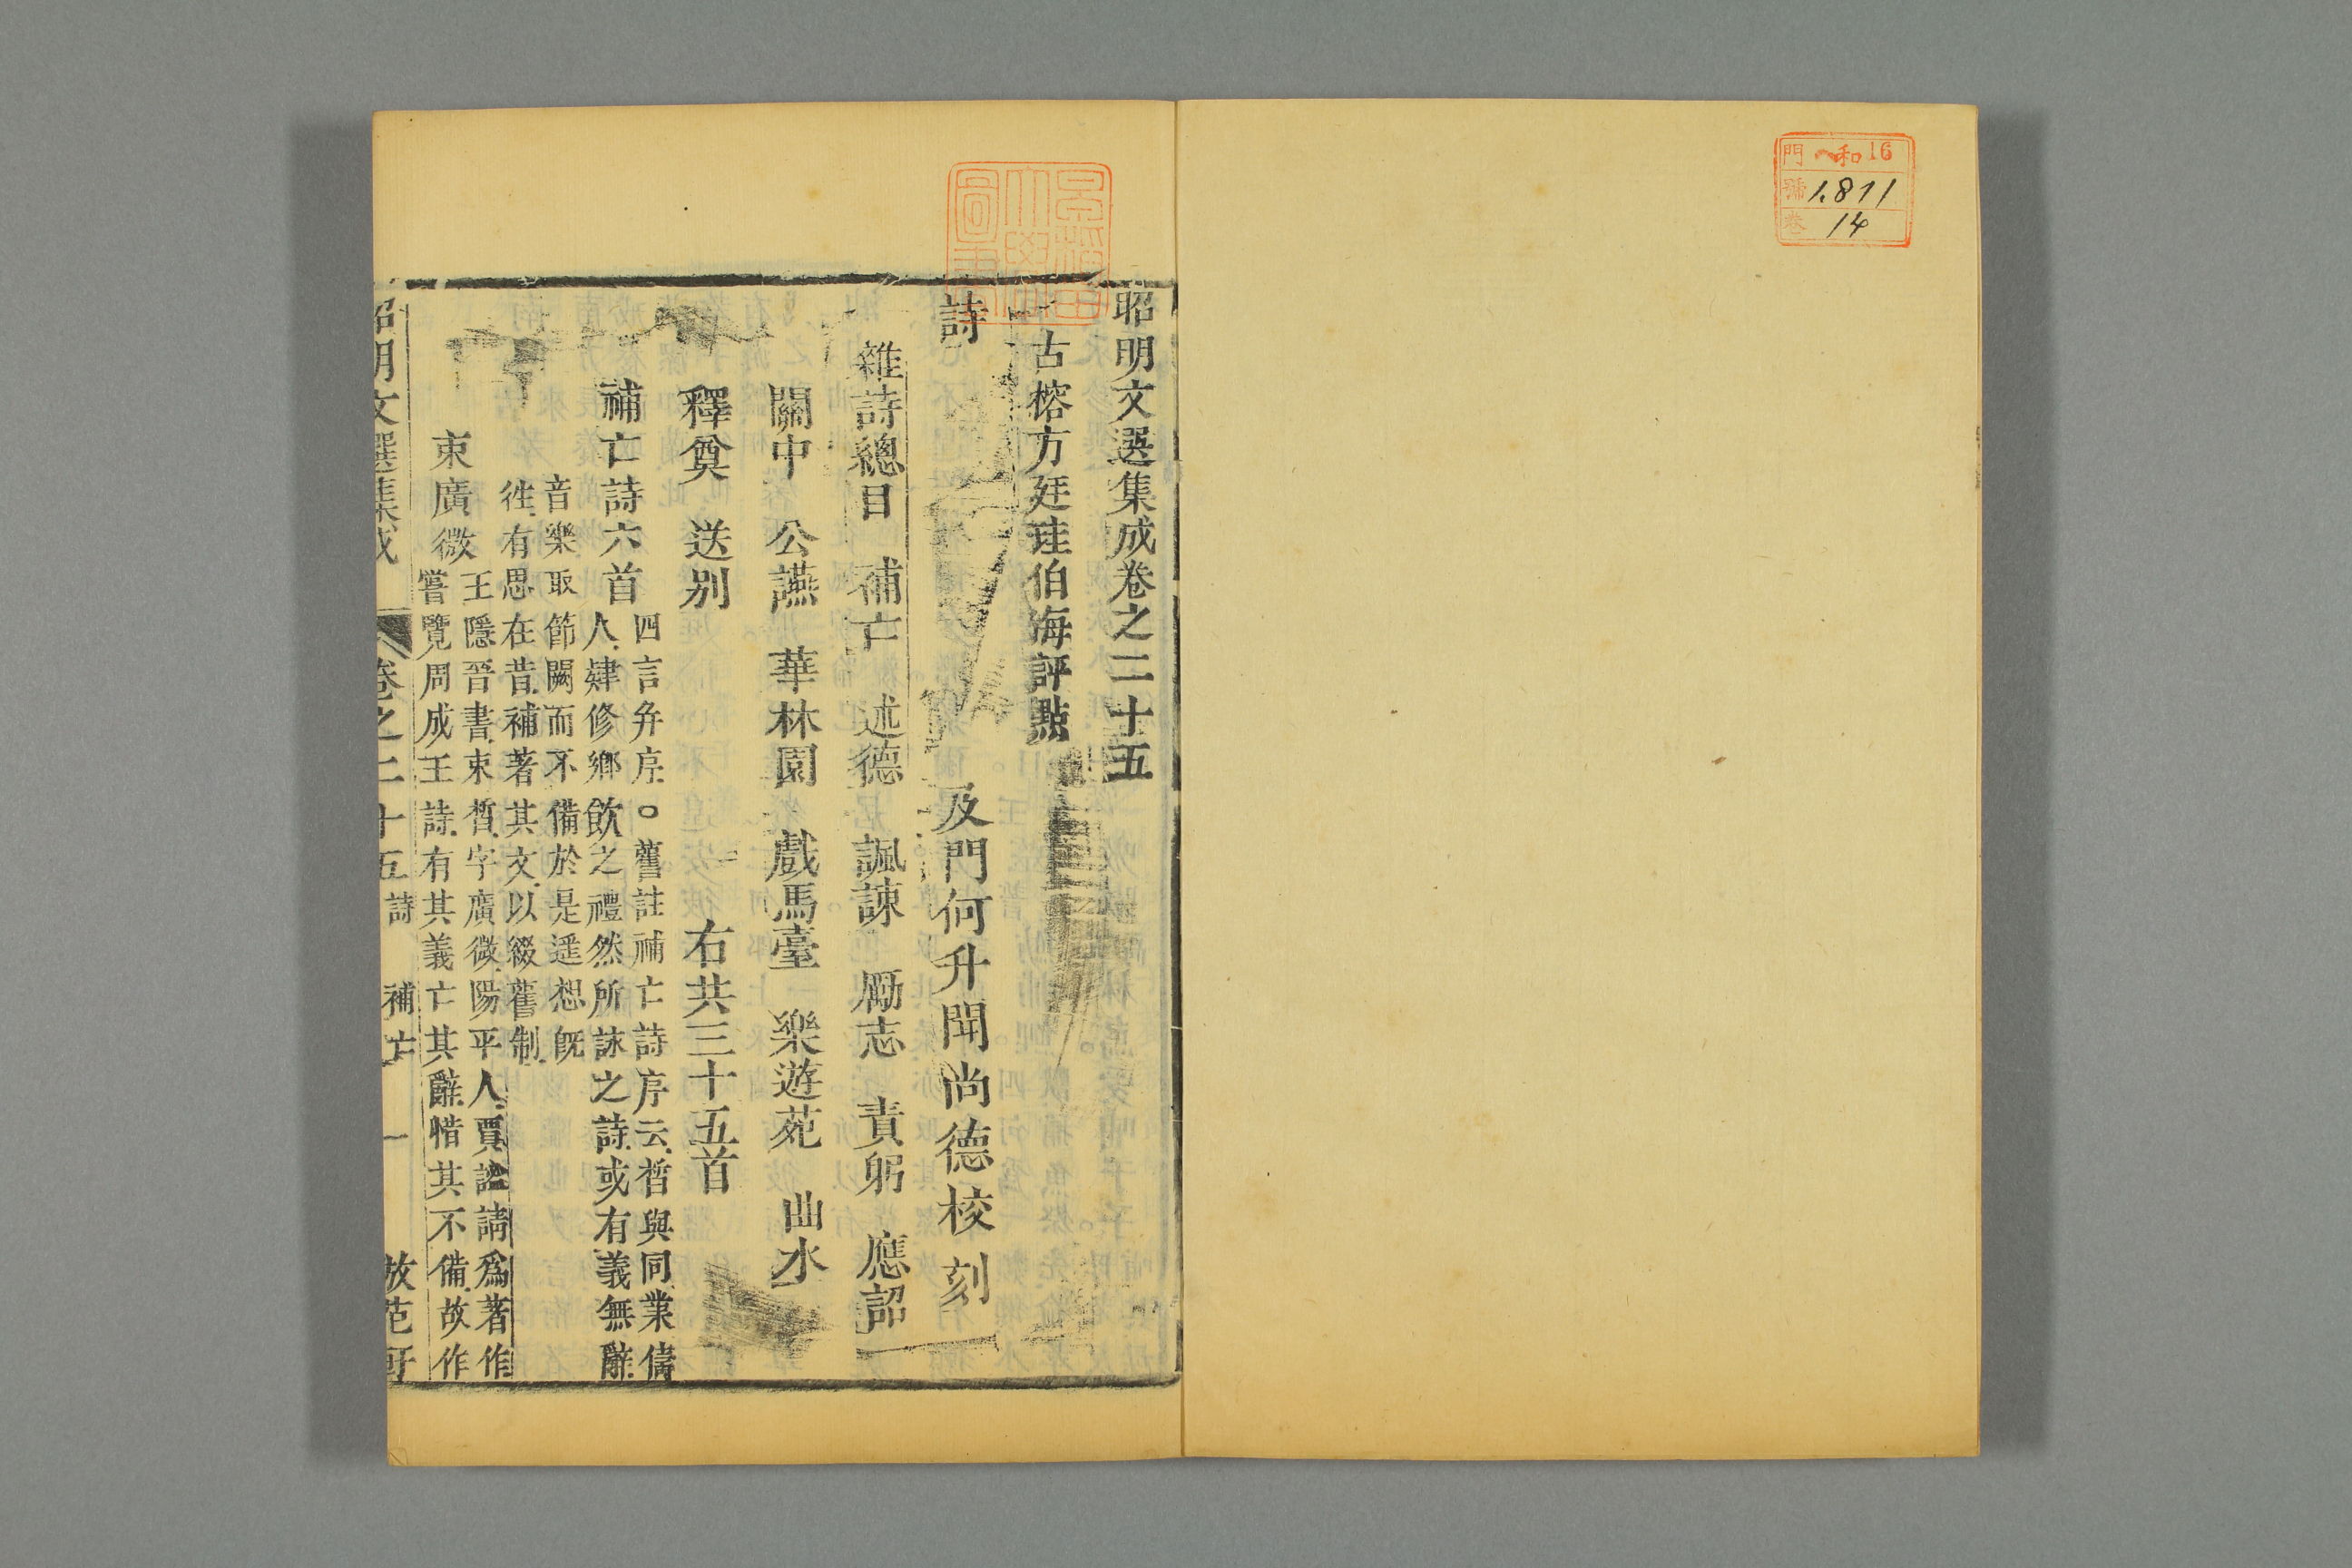 門 ヘ和16
號 1,811
卷 14
昭明文選集成卷之二十五
古榕方廷珪伯海評點
及門何升聞尚德校刻
詩
雜詩總目 補亡 述德 諷諫 勵志 責躬 應詔
關中 公讌 華林園 戲馬臺 樂遊苑 曲水
釋奠 送别 右共三十五首
補亡詩六首 四言弁序。舊註補亡詩序云晳與同業儔
人肄修鄉飲之禮然所詠之詩或有義無辭
音樂取節闕而不備於是遥想旣
徃有思在昔補著其文以綴舊制
束廣微 王隱晉書束晳字廣微陽平人賈謐請爲著作
嘗覽周成王詩有其義亡其辭惜其不備故作
昭明文選集成 卷之二十五 詩 補亡 一 倣范軒